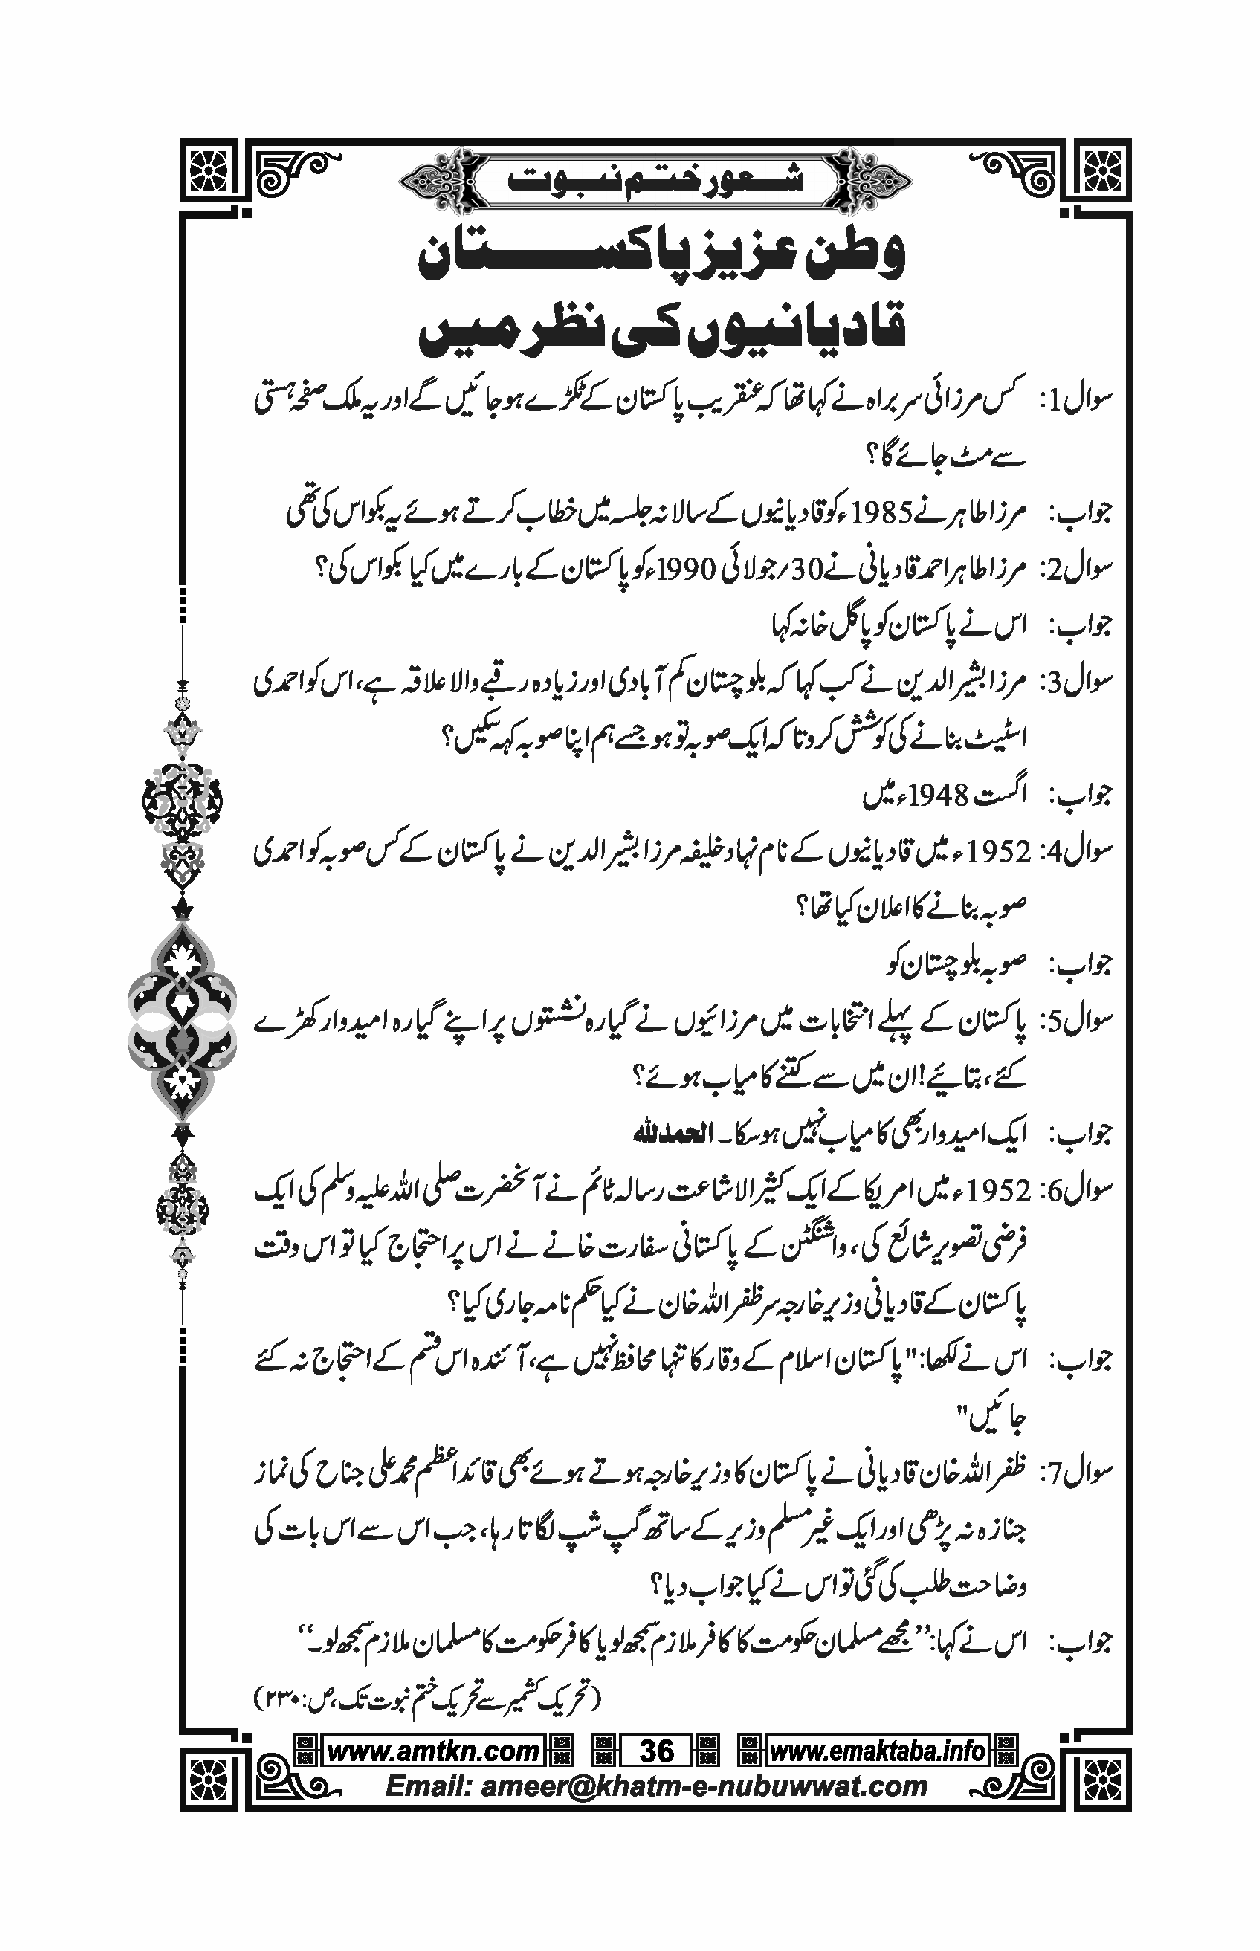 شعور ختم نبوت
وطن عزیز پاکستان
قادیانیوں کی نظر میں
سوال1: کس مرزائی سربراہ نے کہا تھا کہ عنقریب پاکستان کے ٹکڑے ہو جائیں گے اور یہ ملک صفحہ ہستی
سے مٹ جائے گا؟
جواب: مرزا طاہر نے 1985ء کو قادیانیوں کے سالانہ جلسہ میں خطاب کرتے ہوئے یہ بکواس کی تھی
سوال2: مرزا طاہر احمد قادیانی نے 30/جولائی 1990ء کو پاکستان کے بارے میں کیا بکواس کی؟
جواب: اس نے پاکستان کو پاگل خانہ کہا
سوال3: مرزا بشیر الدین نے کب کہا کہ بلوچستان کم آبادی اور زیادہ رقبے والا علاقہ ہے، اس کو احمدی
اسٹیٹ بنانے کی کوشش کرو تا کہ ایک صوبہ تو ہو جسے ہم اپنا صوبہ کہہ سکیں؟
جواب: اگست 1948ء میں
سوال4: 1952ء میں قادیانیوں کے نام نہاد خلیفہ مرزا بشیر الدین نے پاکستان کے کس صوبہ کو احمدی
صوبہ بنانے کا اعلان کیا تھا؟
جواب: صوبہ بلوچستان کو
سوال5: پاکستان کے پہلے انتخابات میں مرزائیوں نے گیارہ نشستوں پر اپنے گیارہ امیدوار کھڑے
کئے، بتائیے! ان میں سے کتنے کامیاب ہوئے؟
جواب: ایک امیدوار بھی کامیاب نہیں ہو سکا۔ الحمدللہ
سوال6: 1952ء میں امریکا کے ایک کثیر الاشاعت رسالہ ٹائم نے آنحضرت صلی اللہ علیہ وسلم کی ایک
فرضی تصویر شائع کی، واشنگٹن کے پاکستانی سفارت خانے نے اس پر احتجاج کیا تو اس وقت
پاکستان کے قادیانی وزیر خارجہ سر ظفر اللہ خان نے کیا حکم نامہ جاری کیا؟
جواب: اس نے لکھا: "پاکستان اسلام کے وقار کا تنہا محافظ نہیں ہے، آئندہ اس قسم کے احتجاج نہ کئے
جائیں"
سوال7: ظفر اللہ خان قادیانی نے پاکستان کا وزیر خارجہ ہوتے ہوئے بھی قائد اعظم محمد علی جناح کی نماز
جنازہ نہ پڑھی اور ایک غیر مسلم وزیر کے ساتھ گپ شپ لگاتا رہا، جب اس سے اس بات کی
وضاحت طلب کی گئی تو اس نے کیا جواب دیا؟
جواب: اس نے کہا: ”مجھے مسلمان حکومت کا کافر ملازم سمجھ لو یا کافر حکومت کا مسلمان ملازم سمجھ لو۔“
(تحریک کشمیر سے تحریک ختم نبوت تک، ص:۲۳۰)
www.amtkn.com 36 www.emaktaba.info
Email: ameer@khatm-e-nubuwwat.com